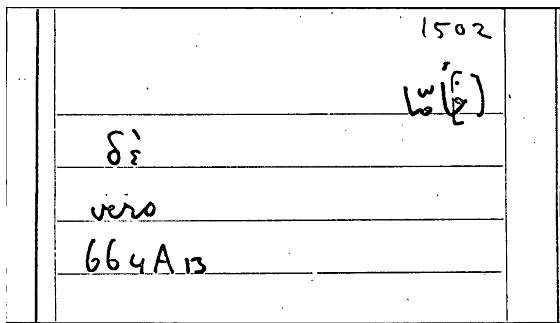 1502
δὲ
vero
664A13